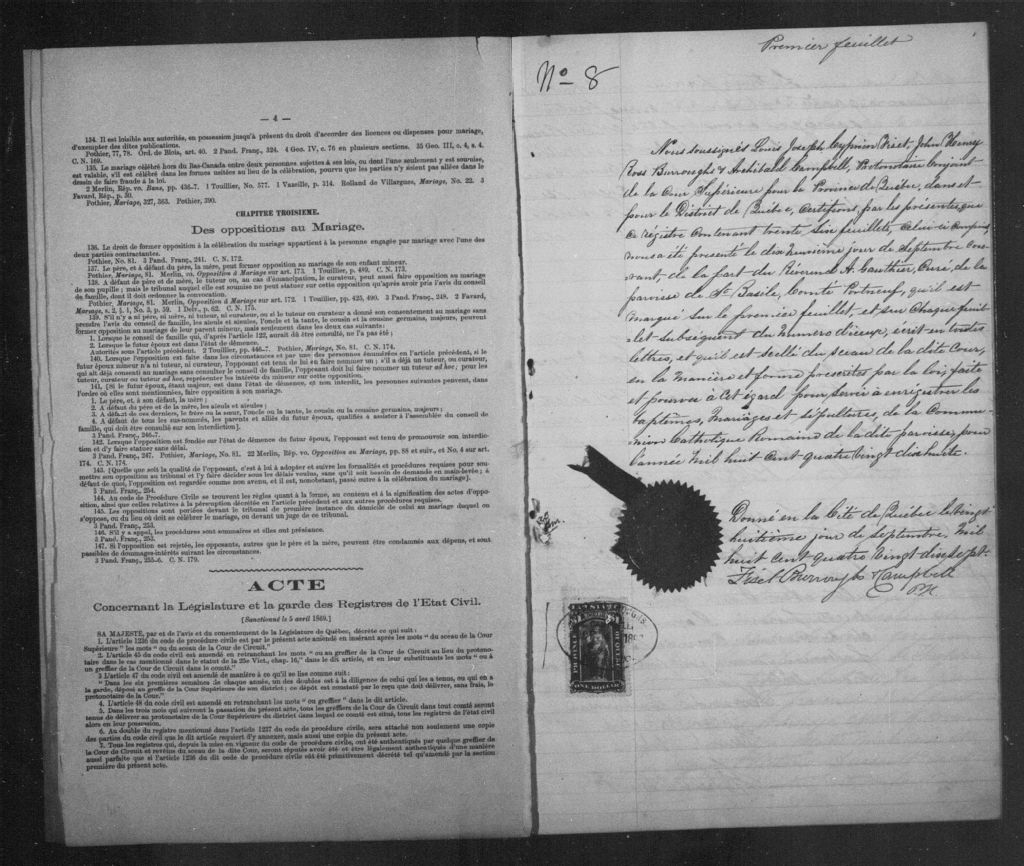 — 4 —
134. Il est loisible aux autorités, en possession jusqu'à présent du droit d'accorder des licences ou dispenses pour mariage,
d'exempter des dites publications.
Pothier, 77, 78. Ord. de Blois, art. 40. 2 Pand. Franç., 324. 4 Geo. IV, c. 76 en plusieurs sections. 35 Geo. III, c. 4, s. 4.
C. N. 169.
135. Le mariage célébré hors du Bas-Canada entre deux personnes sujettes à ses lois, ou dont l'une seulement y est soumise,
est valable, s'il est célébré dans les formes usitées au lieu de la célébration, pourvu que les parties n'y soient pas allées dans le
dessein de faire fraude à la loi.
2 Merlin, Rép. vo. Bans, pp. 436-7. 1 Touillier, No. 577. 1 Vazille, p. 314. Rolland de Villargues, Mariage, No. 22. 3
Favard, Rép., p. 30.
Pothier, Mariage, 327, 363. Pothier, 390.
CHAPITRE TROISIEME.
Des oppositions au Mariage.
136. Le droit de former opposition à la célébration du mariage appartient à la personne engagée par mariage avec l'une des
deux parties contractantes.
Pothier, No. 81. 3 Pand. Franç., 241. C. N. 172.
137. Le père, et à défaut du père, la mère, peut former opposition au mariage de son enfant mineur.
Pothier, Mariage, 81. Merlin, vo. Opposition à Mariage sur art. 173. 1 Touillier, p. 489. C. N. 173.
138. A défaut de père et de mère, le tuteur ou, au cas d'émancipation, le curateur, peut aussi faire opposition au mariage
de son pupille; mais le tribunal auquel elle est soumise ne peut statuer sur cette opposition qu'après avoir pris l'avis du conseil
de famille, dont il doit ordonner la convocation.
Pothier, Mariage, 81. Merlin, Opposition à Mariage sur art. 172. 1 Touillier, pp. 425, 490. 3 Pand. Franç., 248. 2 Favard,
Mariage, s. 2, §. 1, No. 3, p. 59. 1 Delv., p. 62. C. N. 175.
139. S'il n'y a ni père, ni mère, ni tuteur, ni curateur, ou si le tuteur ou curateur a donné son consentement au mariage sans
prendre l'avis du conseil de famille, les aieuls et aieules, l'oncle et la tante, le cousin et la cousine germains, majeurs, peuvent
former opposition au mariage de leur parent mineur, mais seulement dans les deux cas suivants:
1. Lorsque le conseil de famille qui, d'après l'article 122, aurait dû être consulté, ne l'a pas été;
2. Lorsque le futur époux est dans l'état de démence.
Autorités sous l'article précédent. 2 Touillier, pp. 446-7. Pothier, Mariage, No. 81. C. N. 174.
140. Lorsque l'opposition est faite dans les circonstances et par une des personnes énumérées en l'article précédent, si le
futur époux mineur n'a ni tuteur, ni curateur, l'opposant est tenu de lui en faire nommer un; s'il a déjà un tuteur, ou curateur,
qui ait déjà consenti au mariage sans consulter le conseil de famille, l'opposant doit lui faire nommer un tuteur ad hoc; pour les
tuteur, curateur ou tuteur ad hoc, représenter les intérêts du mineur sur cette opposition.
141. [Si le futur époux, étant majeur, est dans l'état de démence, et non interdit, les personnes suivantes peuvent, dans
l'ordre où elles sont mentionnées, faire opposition à son mariage.
1. Le père, et, à son défaut, la mère;
2. A défaut du père et de la mère, les aieuls et aieules;
3. A défaut de ces derniers, le frère ou la sœur, l'oncle ou la tante, le cousin ou la cousine germains, majeurs;
4. A défaut de tous les sus-nommés, les parents et alliés du futur époux, qualifiés à assister à l'assemblée du conseil de
famille, qui doit être consulté sur son interdiction].
3 Pand. Franç., 246-7.
142. Lorsque l'opposition est fondée sur l'état de démence du futur époux, l'opposant est tenu de promouvoir son interdic-
tion et d'y faire statuer sans délai.
3 Pand. Franç., 247. Pothier, Mariage, No. 81. 22 Merlin, Rép. vo. Opposition au Mariage, pp. 88 et suiv., et No. 4 sur art.
174. C. N. 174.
143. [Quelle que soit la qualité de l'opposant, c'est à lui à adopter et suivre les formalités et procédures requises pour sou-
mettre son opposition au tribunal et l'y faire décider sous les délais voulus, sans qu'il soit besoin de demande en main-levée; à
défaut de quoi, l'opposition est regardée comme non avenu, et il est, nonobstant, passé outre à la célébration du mariage].
3 Pand. Franç., 254.
144. Au code de Procédure Civile se trouvent les règles quant à la forme, au contenu et à la signification des actes d'oppo-
sition, ainsi que celles relatives à la péremption décrétée en l'article précédent et aux autres procédures requises.
145. Les oppositions sont portées devant le tribunal de première instance du domicile de celui au mariage duquel on
s'oppose, ou du lieu où doit se célébrer le mariage, ou devant un juge de ce tribunal.
3 Pand. Franç., 253.
146. S'il y a appel, les procédures sont sommaires et elles ont préséance.
3 Pand. Franç., 253.
147. Si l'opposition est rejetée, les opposants, autres que le père et la mère, peuvent être condamnés aux dépens, et sont
passibles de doumages-intérêts suivant les circonstances.
3 Pand. Franç., 255-6. C. N. 179.
ACTE
Concernant la Législature et la garde des Registres de l'Etat Civil.
[Sanctionné le 5 avril 1869.]
SA MAJESTÉ, par et de l'avis et du consentement de la Législature de Québec, décrète ce qui suit:
1. L'article 1236 du code de procédure civile est par le présent acte amendé en insérant après les mots "du sceau de la Cour
Supérieure" les mots "ou du sceau de la Cour de Circuit."
2. L'article 45 du code civil est amendé en retranchant les mots "ou au greffier de la Cour de Circuit au lieu du protono-
taire dans le cas mentionné dans le statut de la 25e Vict., chap. 16," dans le dit article, et en leur substituant les mots "ou à
un greffier de la Cour de Circuit dans le comté."
3. L'article 47 du code civil est amendé de manière à ce qu'il se lise comme suit:
"Dans les six premières semaines de chaque année, un des doubles est à la diligence de celui qui les a tenus, ou qui en a
la garde, déposé au greffe de la Cour Supérieure de son district; ce dépôt est constaté par le reçu que doit délivrer, sans frais, le
protonotaire de la Cour."
4. L'article 48 du code civil est amendé en retranchant les mots "ou greffier" dans le dit article.
5. Dans les trois mois qui suivront la passation du présent acte, tous les greffiers de la Cour de Circuit dans tout comté seront
tenus de délivrer au protonotaire de la Cour Supérieure du district dans lequel ce comté est situé, tous les registres de l'état civil
alors en leur possession.
6. Au double du registre mentionné dans l'article 1237 du code de procédure civile, sera attaché non seulement une copie
des parties du code civil que le dit article requiert d'y annexer, mais aussi une copie du présent acte.
7. Tous les registres qui, depuis la mise en vigueur du code de procédure civile, ont été authentiqués par quelque greffier de
la Cour de Circuit et revêtus du sceau de la dite Cour, seront réputés avoir été et être légalement authentiqués d'une manière
aussi parfaite que si l'article 1236 du dit code de procédure civile eût été primitivement décrété tel qu'amendé par la section
première du présent acte.
Premier feuillet
No 8
Nous soussignés Louis Joseph Cyprien Fiset, John Henry
Ross Burroughs & Archibald Campbell, Protonotaire Conjoint
de la Cour Supérieure pour la Province de Québec, dans et
pour le District de Québec, Certifions, par les présentes que
ce régistre Contenant trente six feuillets, Celui-ci Compris
nous a été présenté le dix neuvième jour de Septembre Cou-
rant, de la part du Réverend A. Gauthier, Curé, de la
paroisse de St Basile, Comté Portneuf, qu'il est
marqué sur le premier feuillet, et sur Chaque feuil-
let subséquent du numéro d'iceux, écrit en toutes
lettres, et qu'il est scellé du sceau de la dite Cour,
en la manière et forme prescrites par la loi, faite
et pourvue à Cet égard pour servir à enrégistrer les
baptêmes, mariages et sépultures, de la Commu-
nion Catholique Romaine de la dite paroisse, pour
l'année Mil huit Cent quatre vingt dix huit.
Donné en la Cité de Québec le vingt
huitième jour de septembre, Mil
huit Cent quatre Vingt dix sept.
Fiset Burroughs & Campbell
P.C.S.
ONE DOLLAR